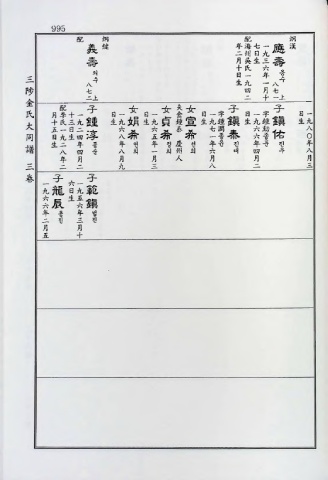 995
三陟金氏大同譜 三卷
一九八〇年八月三
日生
炯漢
應壽 응수 八七一上
一九三六年一月十
七日生
配海州吳氏一九四二
年二月十日生
子鎭佑 진우
字鍾勳
一九六六年四月二
日生
子鎭泰 진태
一九七一年六月八
日生
女宣希 선희
夫金鍾泰 慶州人
女貞希 정희
一九六五年一月三
日生
女娟希 연희
一九六八年八月九
日生
炯
義壽 의수 八七二上
配
子鍾淳 종순
一九二四年四月二
十三日生
配李氏一九二八年二
月十五日生
子範鎭 범진
一九五六年三月十
六日生
子龍辰 용진
一九六六年二月五